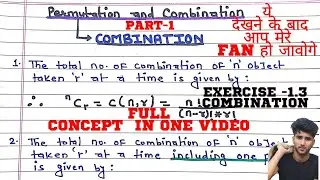 Permutation and Combination
PART-1
COMBINATION
ये
देखने के बाद
आप मेरे
FAN हो जावोगे
1. The total no. of combination of 'n' object
taken 'r' at a time is given by :
∴ ⁿCᵣ = C(n,r) = n!
(n-r)!*r!
EXERCISE -1.3
COMBINATION
FULL
CONCEPT IN ONE VIDEO
2. The total no. of combination of 'n' obje
taken 'r' at a time including one p
is given by :